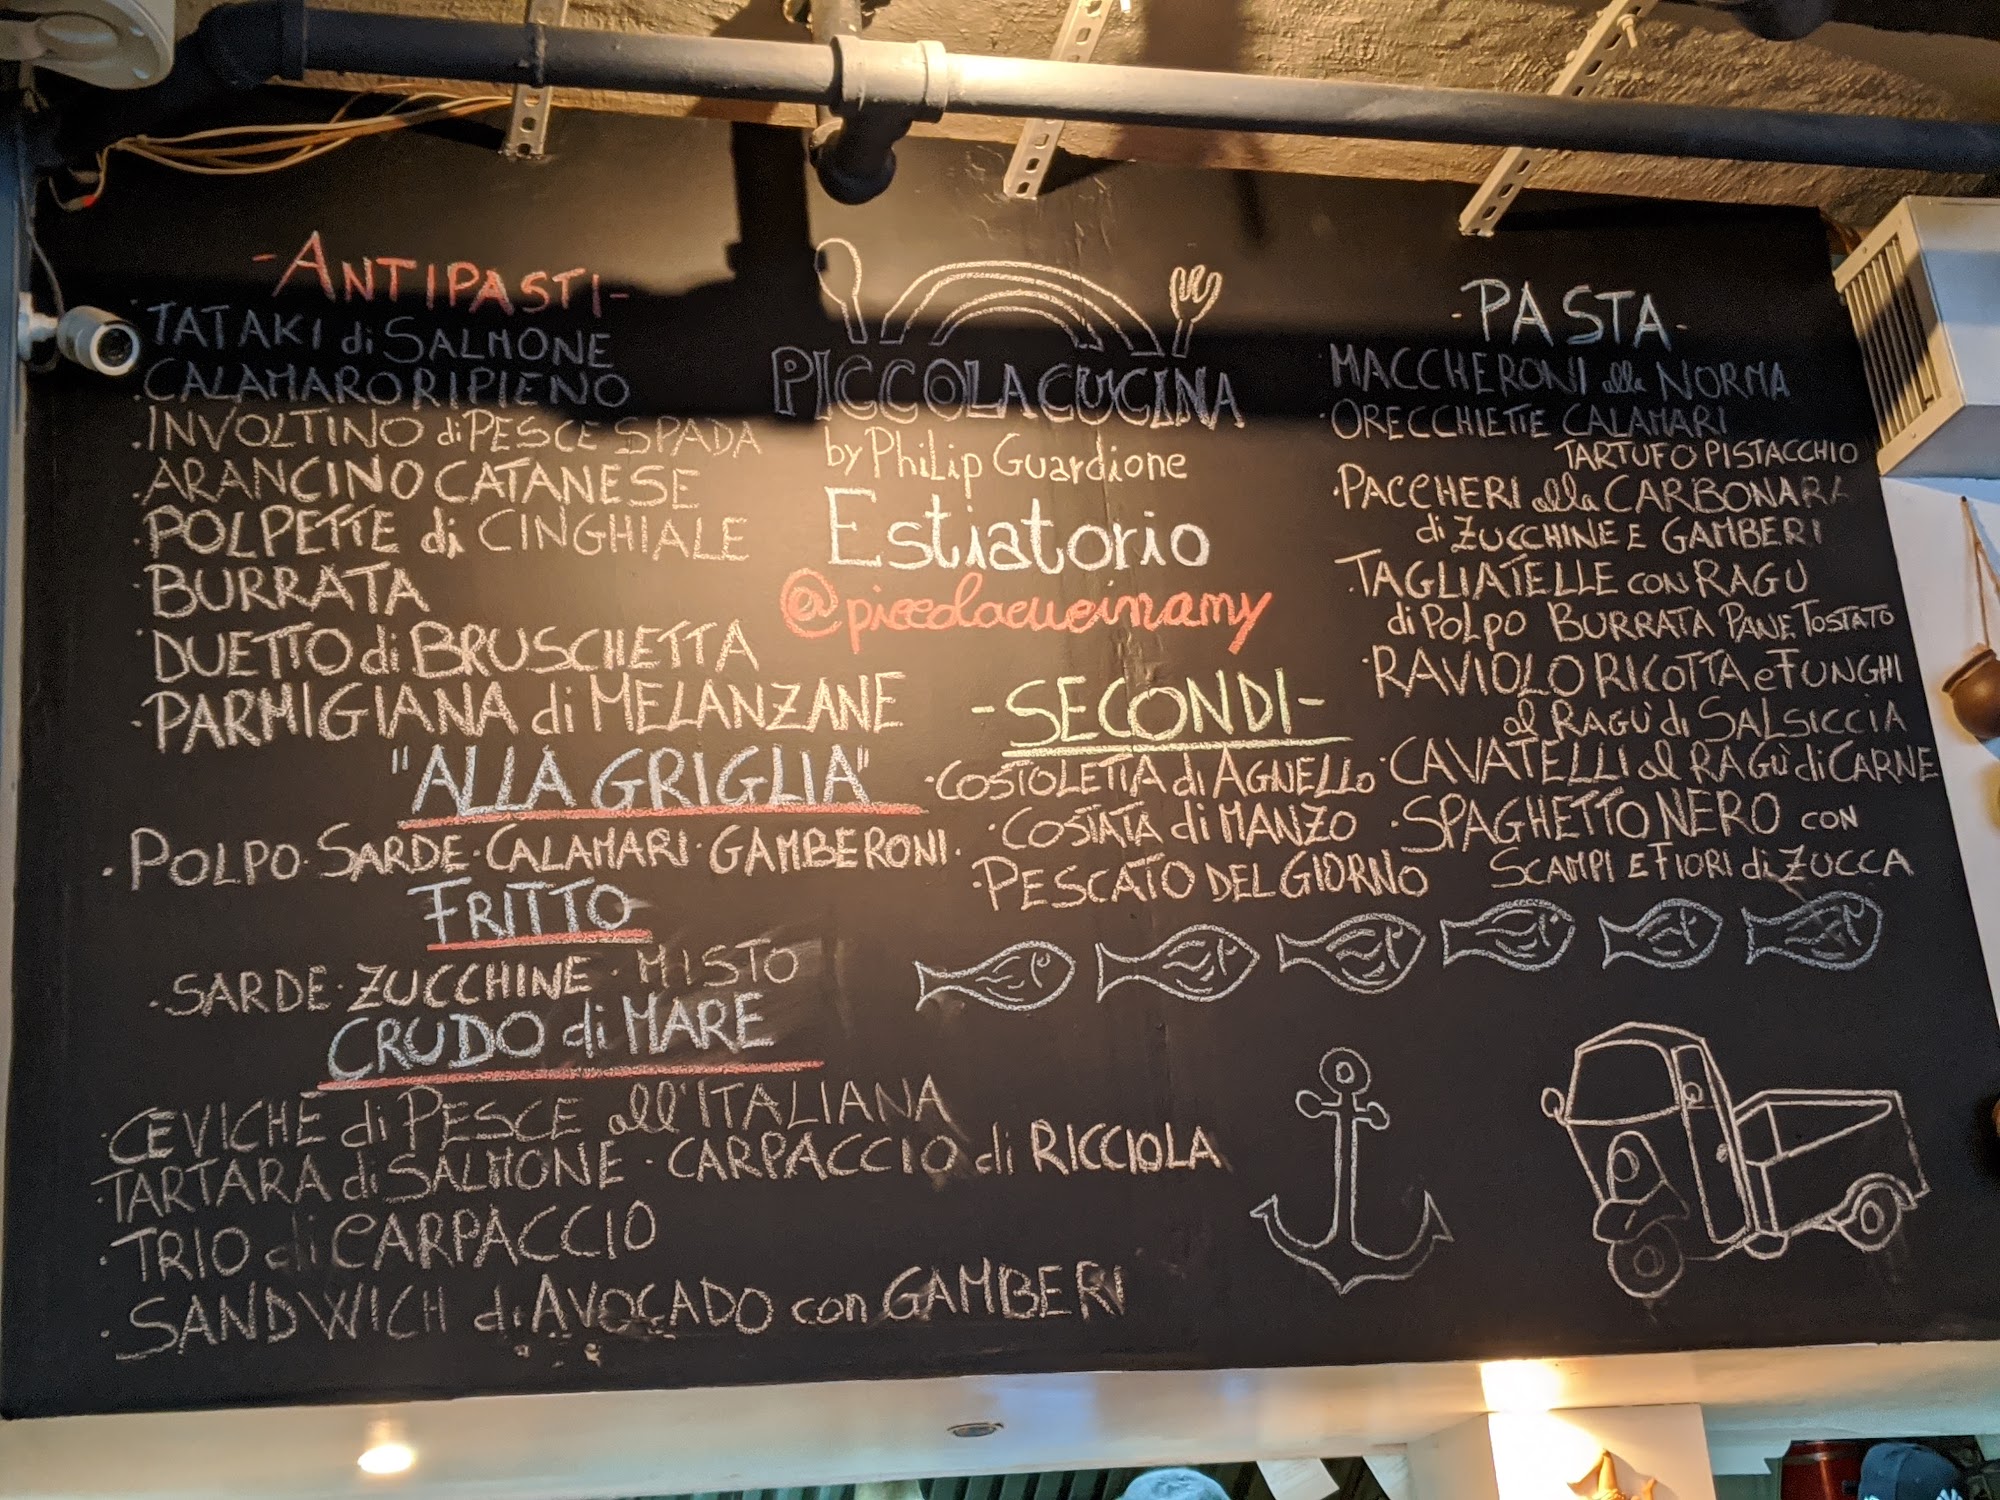 -ANTIPASTI-
·TATAKI di SALMONE
·CALAMARO RIPIENO
·INVOLTINO di PESCE SPADA
·ARANCINO CATANESE
·POLPETTE di CINGHIALE
·BURRATA
·DUETTO di BRUSCHETTA
·PARMIGIANA di MELANZANE
"ALLA GRIGLIA"
·POLPO·SARDE·CALAMARI·GAMBERONI·
FRITTO
·SARDE·ZUCCHINE·MISTO
CRUDO di MARE
·CEVICHE di PESCE all'ITALIANA
·TARTARA di SALMONE·CARPACCIO di RICCIOLA
·TRIO di CARPACCIO
·SANDWICH di AVOCADO con GAMBERI
PICCOLA CUCINA
by PHiLip Guardione
Estiatorio
@piccolacucinamy
-SECONDI-
·COSTOLETTA di AGNELLO
·COSTATA di MANZO
·PESCATO DEL GIORNO
-PASTA-
·MACCHERONI alla NORMA
·ORECCHIETTE CALAMARI
TARTUFO PISTACCHIO
·PACCHERI alla CARBONARA
di ZUCCHINE E GAMBERI
·TAGLIATELLE CON RAGÙ
di POLPO BURRATA PANE TOSTATO
·RAVIOLO RICOTTA e FUNGHI
al RAGÙ di SALSICCIA
·CAVATELLI al RAGÙ di CARNE
·SPAGHETTO NERO CON
SCAMPI E FIORI di ZUCCA